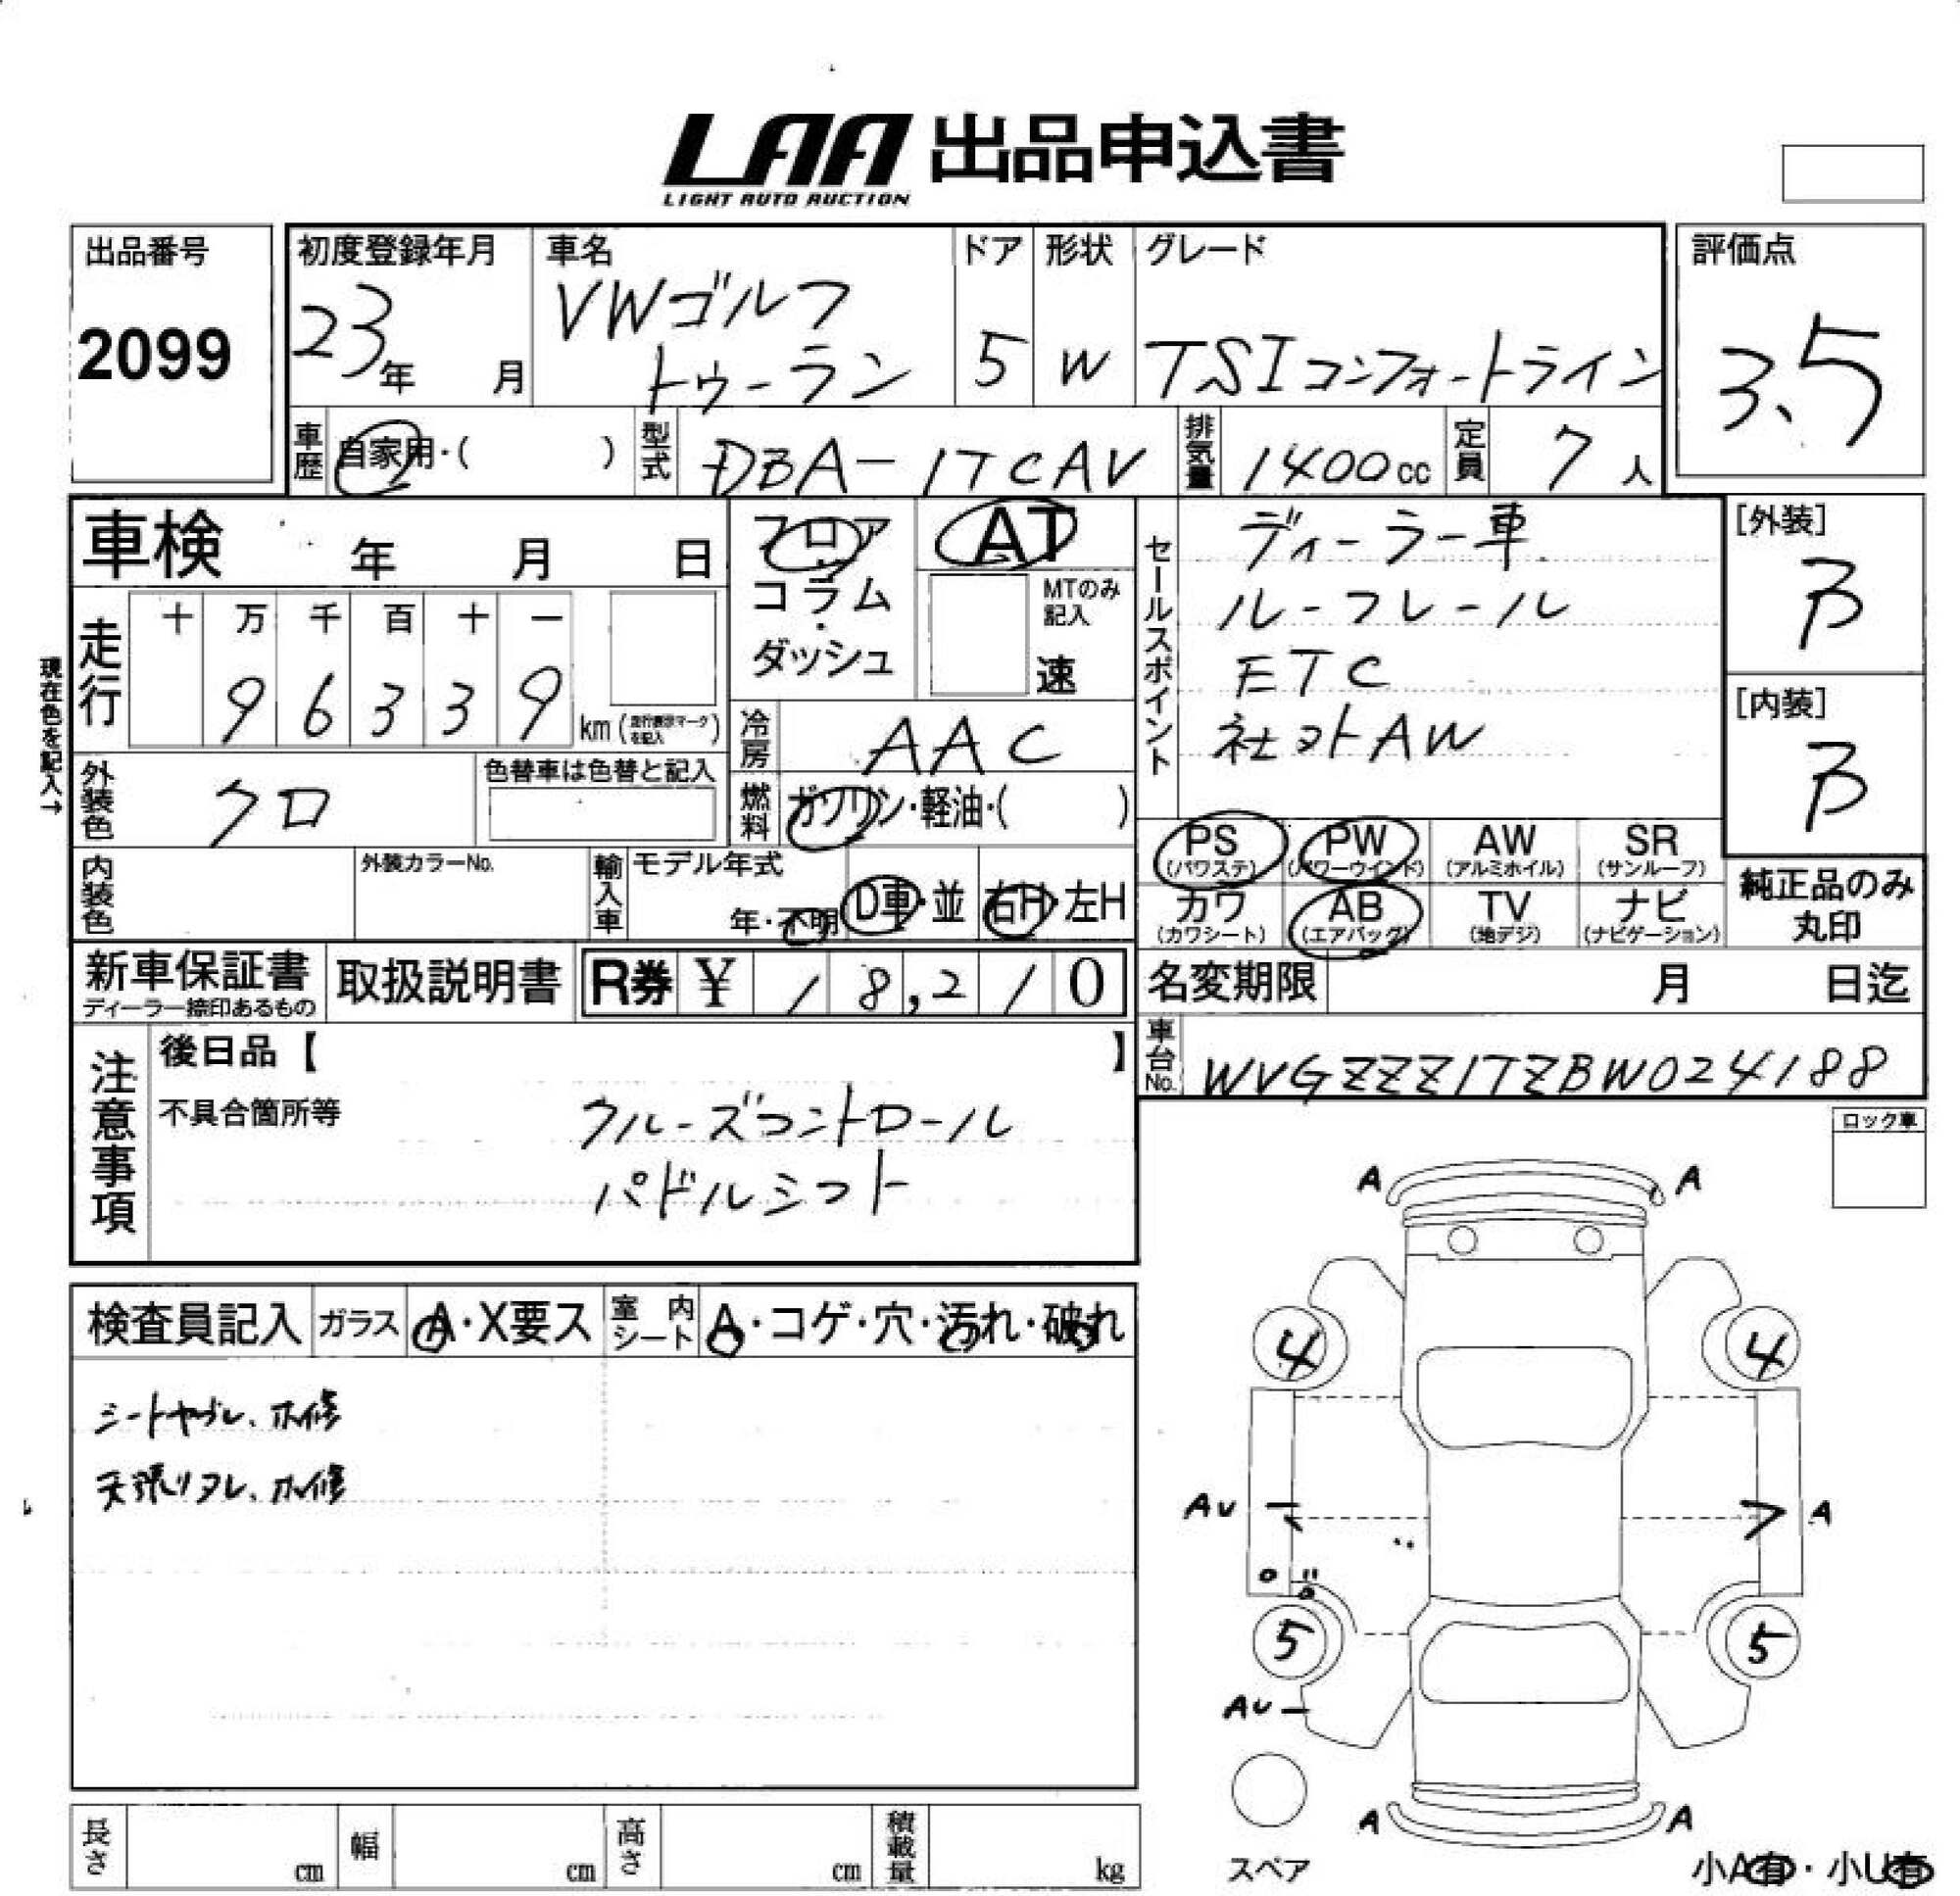 LAA 出品申込書
LIGHT AUTO AUCTION
出品番号
2099
初度登録年月
23年 月
車名
VWゴルフ
トゥーラン
ドア
5
形状
W
グレード
TSIコンフォートライン
評価点
3.5
車歴 自家用・( )
型式 DBA-1TCAV
排気量 1400cc
定員 7人
車検 年 月 日
フロア
・
コラム
・
ダッシュ
AT
MTのみ
記入
速
セールスポイント
ディーラー車
ルーフレール
ETC
社外AW
[外装]
B
[内装]
B
現在色を記入→
走行
十 万 千 百 十 一
9 6 3 3 9 km (走行表示マークを記入)
冷房 AAC
外装色 クロ
色替車は色替と記入
燃料 ガソリン・軽油・( )
PS (パワステ)
PW (パワーウインド)
AW (アルミホイル)
SR (サンルーフ)
カワ (カワシート)
AB (エアバック)
TV (地デジ)
ナビ (ナビゲーション)
純正品のみ
丸印
内装色
外装カラーNo.
輸入車
モデル年式
年・不明
D車・並
右H・左H
新車保証書
ディーラー捺印あるもの
取扱説明書
R券 ¥ 1 8,2 1 0
名変期限 月 日迄
車台No. WVGZZZ1TZBW024188
注意事項
後日品【 】
不具合箇所等
クルーズコントロール
パドルシフト
ロック車
検査員記入
ガラス A・X要ス
室内シート A・コゲ・穴・汚れ・破れ
シートヤブレ、ホ修
天張リタレ、ホ修
A A
4 4
AU A
5 5
AU
A A
スペア
小A有・小U有
長さ cm
幅 cm
高さ cm
積載量 kg